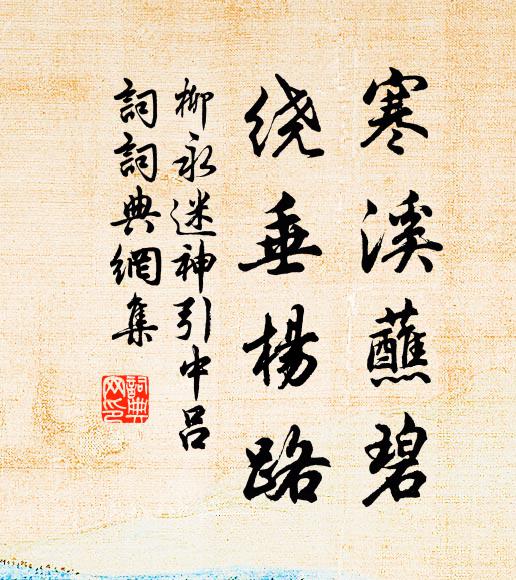 寒溪蘸碧
绕垂楊路
柳永迷神引中呂
詞詞典網集
詞典网印